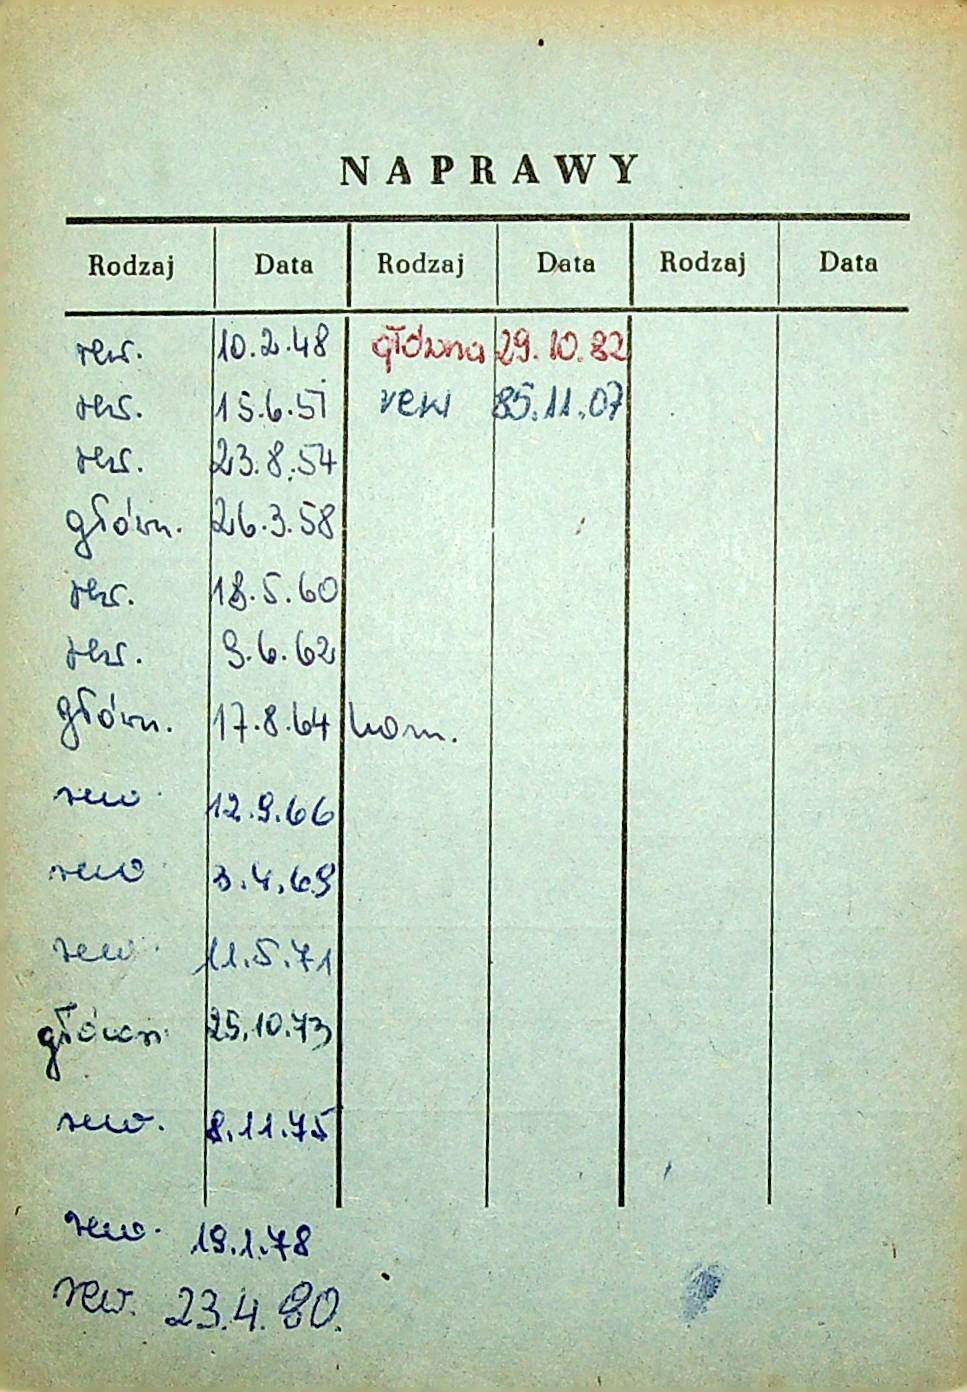 NAPRAWY
Rodzaj Data Rodzaj Data Rodzaj Data
rew. 10.2.48 główna 29.10.82
rew. 15.6.51 rew 85.11.07
rew. 23.8.54
główn. 26.3.58
rew. 18.5.60
rew. 9.6.62
główn. 17.8.64 kom.
rew. 12.9.66
rew 3.4.69
rew. 11.5.71
główn. 25.10.73
rew. 8.11.75
rew. 19.1.78
rew. 23.4.80.